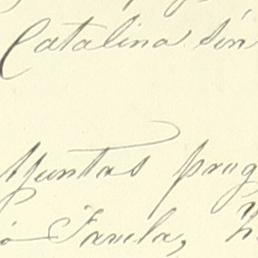 Catalina sin
Juntas prog
ó Favila,